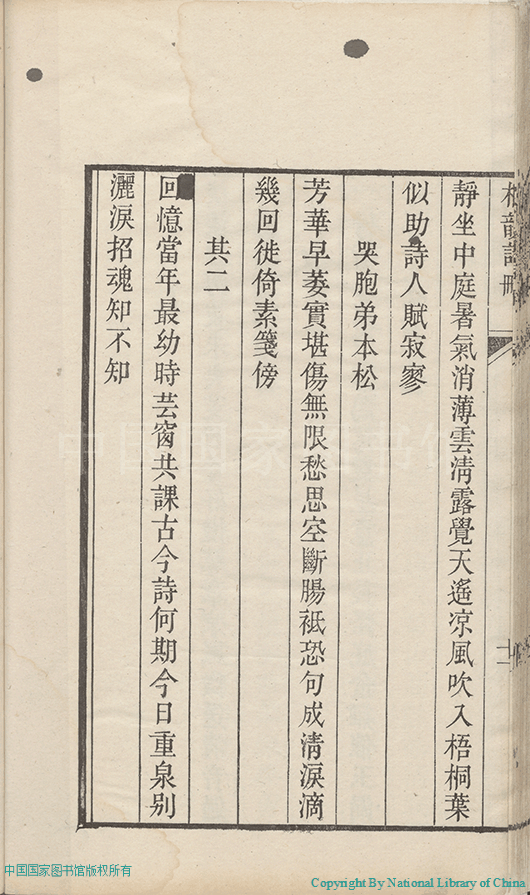 靜坐中庭暑氣消薄雲淸露覺天遙凉風吹入梧桐葉
似助詩人賦寂寥
哭胞弟本松
芳華早萎實堪傷無限愁思空斷腸祗恐句成淸淚滴
幾回徙倚素箋傍
其二
回憶當年最幼時芸窗共課古今詩何期今日重泉別
灑淚招魂知不知
中国国家图书馆版权所有
Copyright By National Library of China